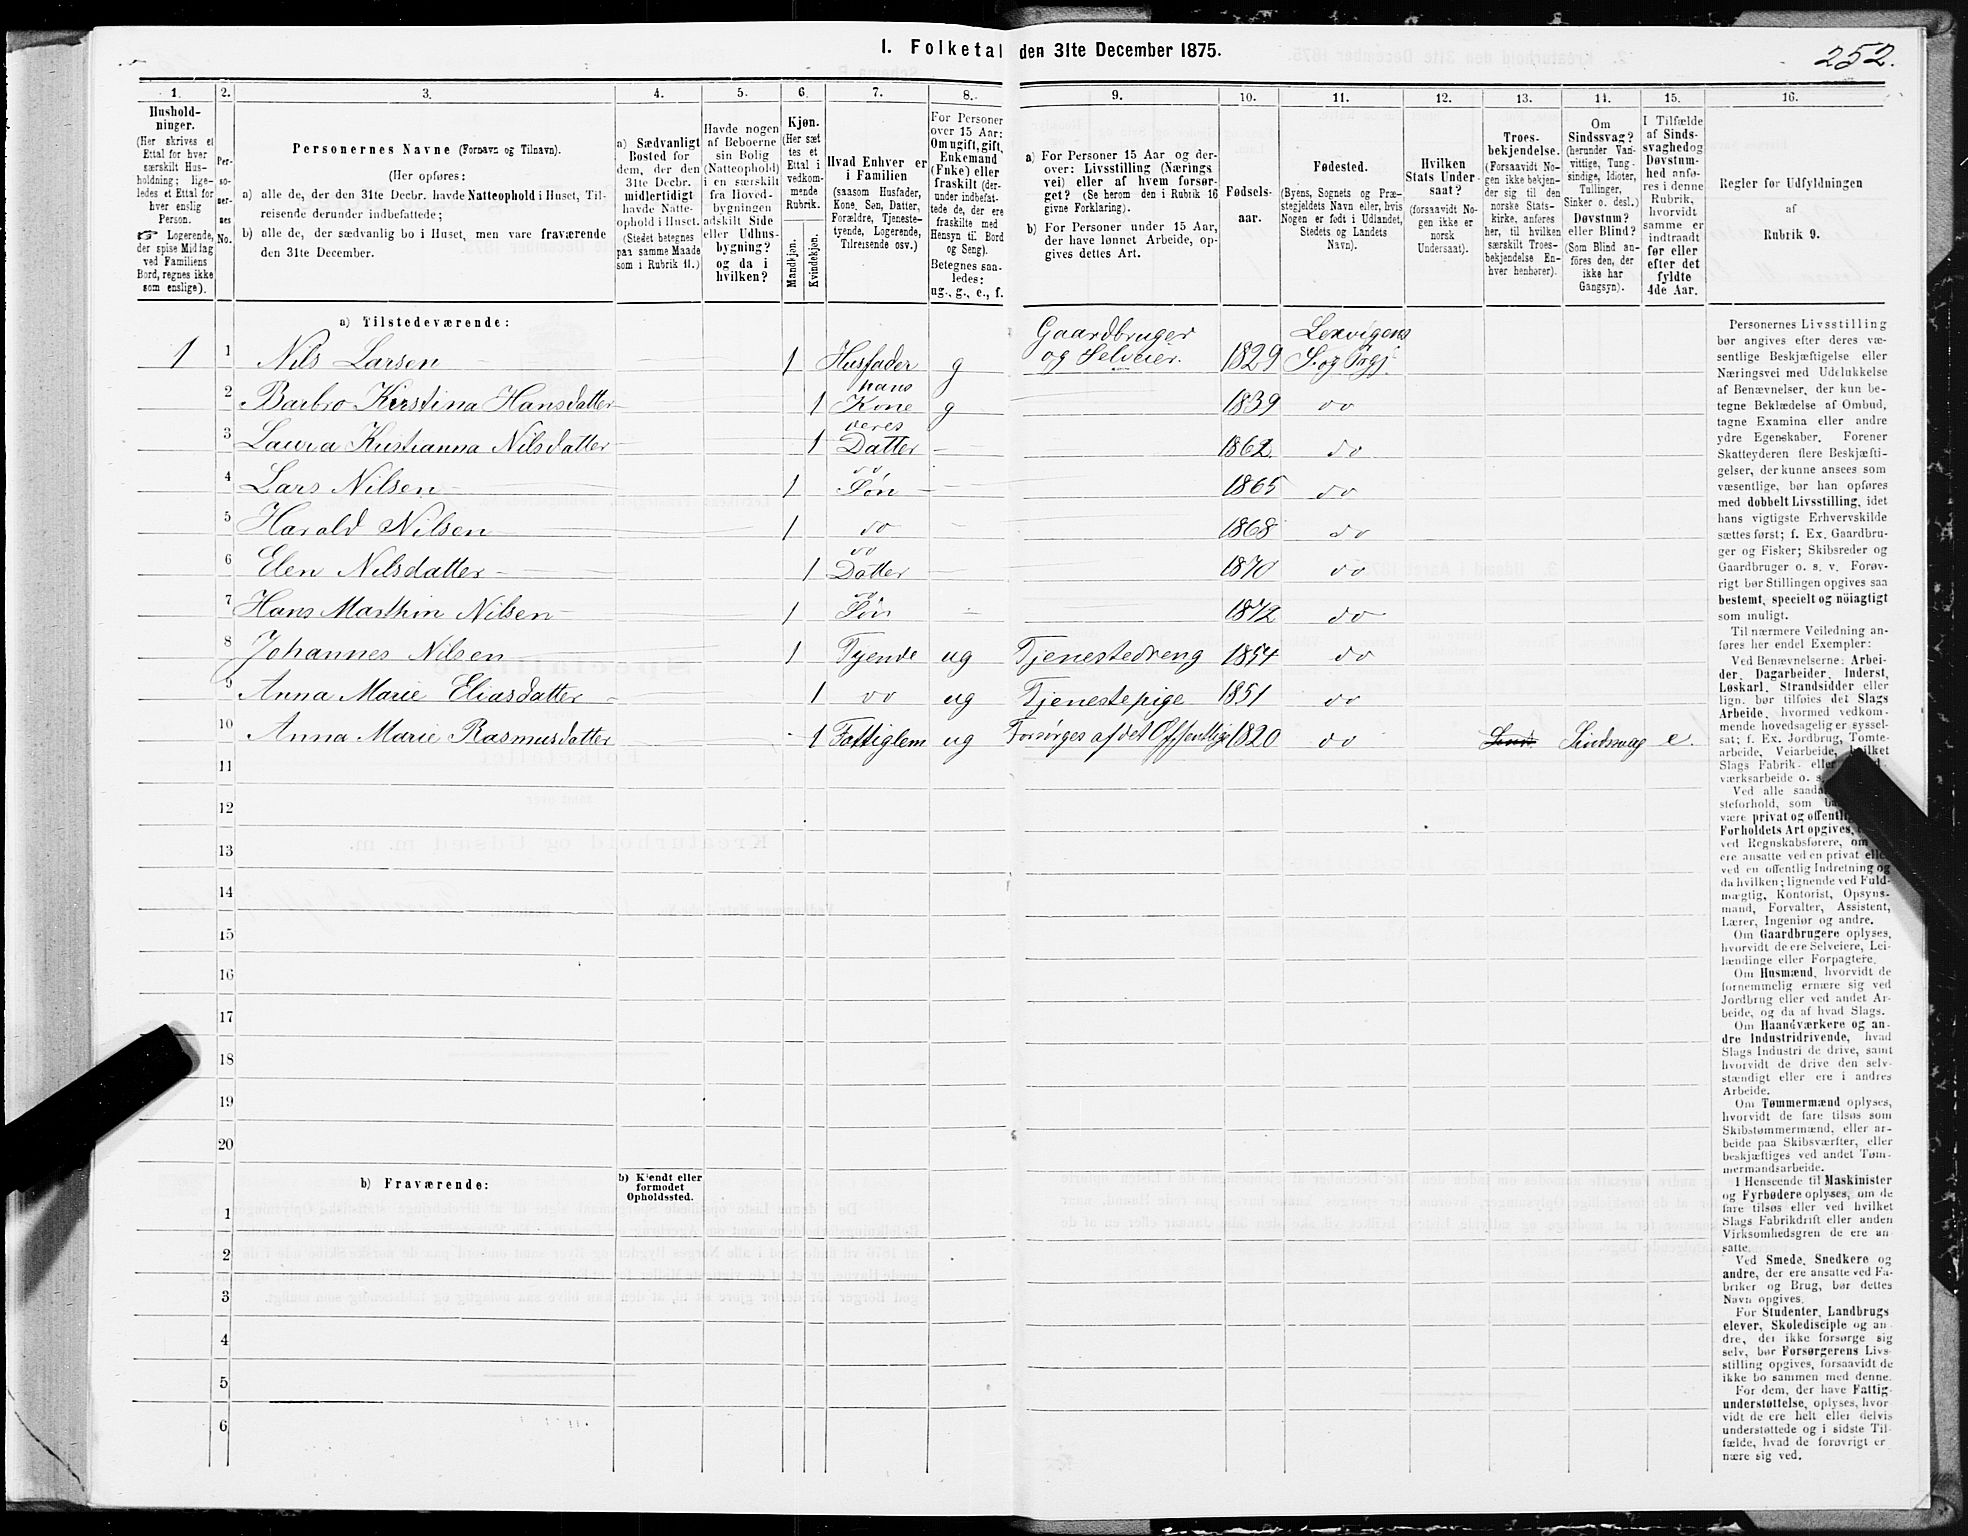 I. Folketal den 31te December 1875.
252.
1. 2. 3. 4. 5. 6. 7. 8. 9. 10. 11. 12. 13. 14. 15. 16.
Hushold-
ninger.
(Her skrives et
Ettal for hver
særskilt Hus-
holdning; lige-
ledes et Ettal for
hver enslig
Person.
☞ Logerende,
der spise Middag
ved Familiens
Bord, regnes ikke
som enslige).
Per-
so-
ner-
nes
No.
Personernes Navne (Fornavn og Tilnavn).
(Her opføres:
a) alle de, der den 31te Decbr. havde Natteophold i Huset, Til-
reisende derunder indbefattede;
b) alle de, der sædvanlig bo i Huset, men vare fraværende
den 31te December.
a) Sædvanligt
Bosted for
dem, der den
31te Decbr.
midlertidigt
havde Natte-
ophold i Huset.
(Stedet betegnes
paa samme Maade
som i Rubrik 11.)
Havde nogen
af Beboerne
sin Bolig
(Natteophold)
i en særskilt
fra Hoved-
bygningen
adskilt Side
eller Udhus-
bygning?
og da i
hvilken?
Kjøn.
(Her sæt
tes et
Ettal i
vedkom-
mende
Rubrik.
Mandkjøn.
Kvindekjøn.
Hvad Enhver er
i Familien
(saasom Husfader,
Kone, Søn, Datter,
Forældre, Tjeneste-
tyende, Logerende,
Tilreisende osv.)
For Personer
over 15 Aar:
Om ugift, gift,
Enkemand
(Enke) eller
fraskilt (der-
under indbefat-
tede de, der ere
fraskilte med
Hensyn til Bord
og Seng).
Betegnes saa-
ledes:
ug., g., e., f.
a) For Personer 15 Aar og der-
over: Livsstilling (Nærings
vei) eller af hvem forsør-
get? (Se herom den i Rubrik 16
givne Forklaring).
b) For Personer under 15 Aar,
der have lønnet Arbeide, op-
gives dettes Art.
Fødsels-
aar.
Fødested.
(Byens, Sognets og Præ-
stegjeldets Navn eller, hvis
Nogen er født i Udlandet,
Stedets og Landets
Navn).
Hvilken
Stats Under-
saat?
(forsaavidt No-
gen ikke er
norsk
Undersaat).
Troes-
bekjendelse.
(Forsaavidt No-
gen ikke bekjen-
der sig til den
norske Stats-
kirke, anføres
her, til hvilken
særskilt Troes-
bekjendelse En-
hver henhører).
Om
Sindssvag?
(herunder Van-
vittige, Tung-
sindige, Idioter,
Tullinger,
Sinker o. desl.)
Døvstum?
eller Blind?
(Som Blind an-
føres den, der
ikke har
Gangsyn).
I Tilfælde
af Sinds-
svaghed og
Døvstum-
hed anfø-
res i denne
Rubrik,
hvorvidt
samme er
indtraadt
før eller
efter det
fyldte
4de Aar.
Regler for Udfyldningen
af
Rubrik 9.
a) Tilstedeværende:
1 1 Nils Larsen 1 Husfader g Gaardbruger og Selveier. 1829 Lexvigens S. og Prgj.
2 Barbro Kirstina Hansdatter 1 hans Kone g 1839 do
3 Laura Kristianna Nilsdatter 1 deres Datter 1862. do
4 Lars Nilsen 1 do Søn 1865 do
5 Harald Nilsen 1 do 1868 do
6 Elen Nilsdatter 1 do Datter 1870 do
7 Hans Marthin Nilsen 1 do Søn 1872 do
8 Johannes Nilsen 1 Tyende ug Tjenestedreng 1854 do
9 Anna Marie Eliasdatter 1 do ug Tjenestepige 1851 do
10 Anna Marie Rasmusdatter 1 Fattiglem ug Forsørges af det Offentlige 1820 do Sindssvag e.
11
12
13
14
15
16
17
18
19
20
b) Fraværende:
b) Kjendt eller
formodet
Opholdssted.
1
2
3
4
5
6
Personernes Livsstilling
bør angives efter deres væ-
sentlige Beskjæftigelse eller
Næringsvei med Udelukkelse
af Benævnelser, der kun be-
tegne Beklædelse af Ombud,
tagne Examina eller andre
ydre Egenskaber. Forener
Skatteyderen flere Beskjæfti-
gelser, der kunne ansees som
væsentlige, bør han opføres
med dobbelt Livsstilling, idet
hans vigtigste Erhvervskilde
sættes først; f. Ex. Gaardbru-
ger og Fisker; Skibsreder og
Gaardbruger o. s. v. Forøv-
rigt bør Stillingen opgives saa
bestemt, specielt og nöiagtigt
som muligt.
Til nærmere Veiledning an-
føres her endel Exempler:
Ved Benævnelserne: Arbei-
der, Dagarbeider, Inderst,
Løskarl, Strandsidder eller
lign. bør tilføies det Slags
Arbeide, hvormed vedkom-
mende hovedsagelig er syssel-
sat; f. Ex. Jordbrug, Tomte-
arbeide, Veiarbeide, hvilket
Slags Fabrik- eller
værksarbeide o. s.
Ved alle
steforhold, som
være privat og
Forholdets Art opgives,
ved Regnskabsførere, om
ere ansatte ved en privat
ved en offentlig Indretning og
da hvilken; lignende ved Fuld-
mægtig, Kontorist, Opsyns-
mand, Forvalter, Assistent,
Lærer, Ingeniør og andre.
Om Gaardbrugere oplyses,
hvorvidt de ere Selveiere, Lei-
lændinge eller Forpagtere.
Om Husmænd, hvorvidt de
fornemmelig ernære sig ved
Jordbrug eller ved andet Ar-
beide, og da af hvad Slags.
Om Haandværkere og an-
dre Industridrivende, hvad
Slags Industri de drive, samt
hvorvidt de drive den selv-
stændigt eller ere i andres
Arbeide.
Om Tømmermænd oplyses,
hvorvidt de fare tilsøs som
Skibstømmermænd, eller ar-
beide paa Skibsværfter, eller
beskjæftiges ved andet Tøm-
mermandsarbeide.
I Henseende til Maskinister
og Fyrbødere oplyses, om de
fare tilsøs eller ved hvilket
Slags Fabrikdrift eller anden
Virksomhedsgren de ere an-
satte.
Ved Smede, Snedkere og
andre, der ere ansatte ved Fa-
briker og Brug, bør dettes
Navn opgives.
For Studenter, Landbrugs
elever, Skoledisciple og an-
dre, der ikke forsørge sig
selv, bør Forsørgerens Livs-
stilling opgives, forsaavidt de
ikke bo sammen med denne.
For dem, der have Fattig-
understøttelse, oplyses, hvor-
vidt de ere helt eller delvis
understøttede og i sidste Til-
fælde, hvad de forøvrigt er-
nære sig ved.